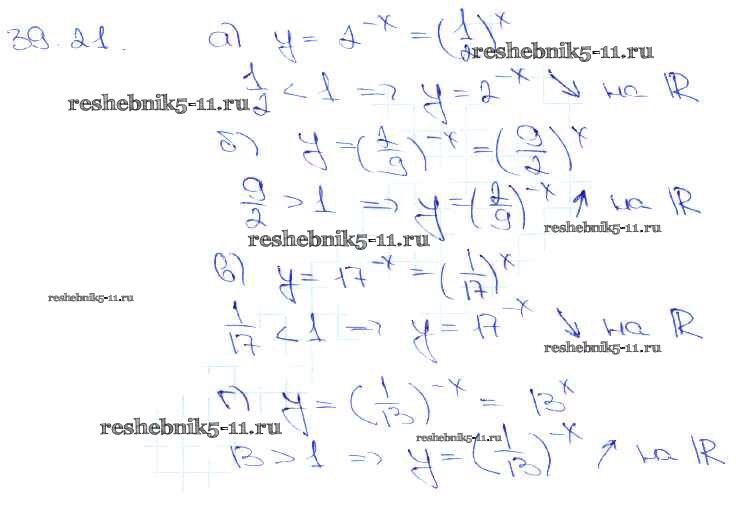 39.21. а) y = 2^{-x} = (1/2)^x
reshebnik5-11.ru
1/2 < 1 => y = 2^{-x} ↘ на ℝ
reshebnik5-11.ru
б) y = (2/9)^{-x} = (9/2)^x
9/2 > 1 => y = (2/9)^{-x} ↑ на ℝ
reshebnik5-11.ru
reshebnik5-11.ru
в) y = 17^{-x} = (1/17)^x
reshebnik5-11.ru
1/17 < 1 => y = 17^{-x} ↘ на ℝ
reshebnik5-11.ru
г) y = (1/13)^{-x} = 13^x
reshebnik5-11.ru
reshebnik5-11.ru
13 > 1 => y = (1/13)^{-x} ↑ на ℝ